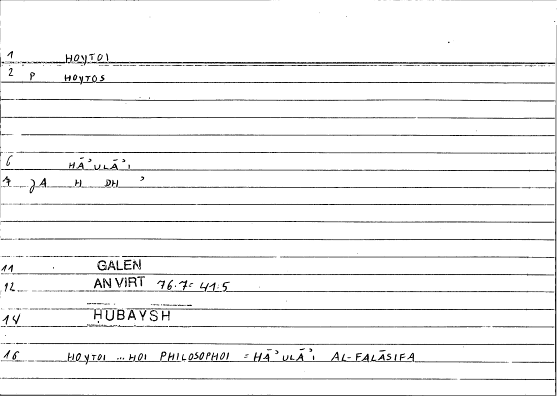 1 HOYTOI
2 P HOYTOS
6 HĀʾULĀʾI
7 JA H DH ʾ
11 GALEN
12 AN VIRT 76.7 = 41:5
14 ḤUBAYSH
16 HOYTOI ... HOI PHILOSOPHOI = HĀʾULĀʾI AL-FALĀSIFA